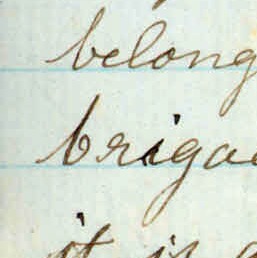 belong
briga
it is